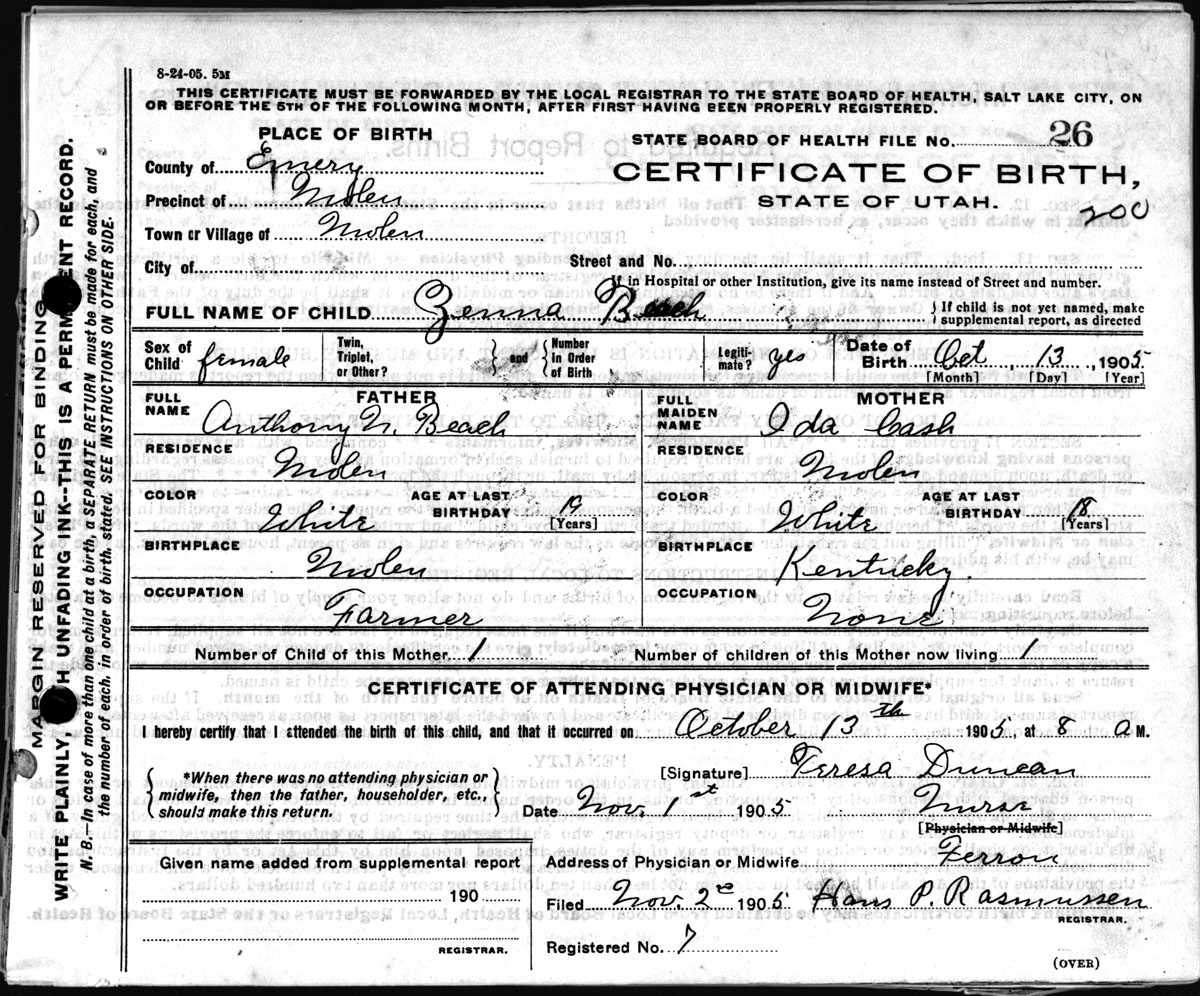 8-24-05. 5M
THIS CERTIFICATE MUST BE FORWARDED BY THE LOCAL REGISTRAR TO THE STATE BOARD OF HEALTH, SALT LAKE CITY, ON
OR BEFORE THE 5TH OF THE FOLLOWING MONTH, AFTER FIRST HAVING BEEN PROPERLY REGISTERED.
PLACE OF BIRTH
County of Emery
Precinct of Molen
Town or Village of Molen
City of
STATE BOARD OF HEALTH FILE NO. 26
CERTIFICATE OF BIRTH,
STATE OF UTAH.
200
Street and No.
If in Hospital or other Institution, give its name instead of Street and number.
FULL NAME OF CHILD Zenna Beach } If child is not yet named, make supplemental report, as directed
Sex of Child female Twin, Triplet, or Other? } and { Number in Order of Birth Legitimate? yes Date of Birth Oct 13, 1905
[Month] [Day] [Year]
FATHER
FULL NAME Anthony N. Beach
RESIDENCE Molen
COLOR White AGE AT LAST BIRTHDAY 19 [Years]
BIRTHPLACE Molen
OCCUPATION Farmer
MOTHER
FULL MAIDEN NAME Ida Cash
RESIDENCE Molen
COLOR White AGE AT LAST BIRTHDAY 18 [Years]
BIRTHPLACE Kentucky.
OCCUPATION None
Number of Child of this Mother 1 Number of children of this Mother now living 1
CERTIFICATE OF ATTENDING PHYSICIAN OR MIDWIFE*
I hereby certify that I attended the birth of this child, and that it occurred on October 13th 1905 at 8 a M.
{ *When there was no attending physician or
midwife, then the father, householder, etc.,
should make this return. }
[Signature] Teresa Duncan
Date Nov. 1st 1905 Nurse
[Physician or Midwife]
Given name added from supplemental report
190
REGISTRAR.
Address of Physician or Midwife Ferron
Filed Nov. 2nd 1905 Hans P. Rasmussen
REGISTRAR.
Registered No. 7
(OVER)
MARGIN RESERVED FOR BINDING
WRITE PLAINLY, UNFADING INK--THIS IS A RECORD.
N. B.--In case of more than one child at a birth, a SEPARATE RETURN must be made for each, and
the number of each, in order of birth, stated. SEE INSTRUCTIONS ON OTHER SIDE.